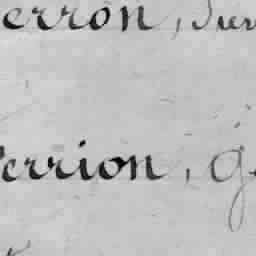 erron,
errion, g